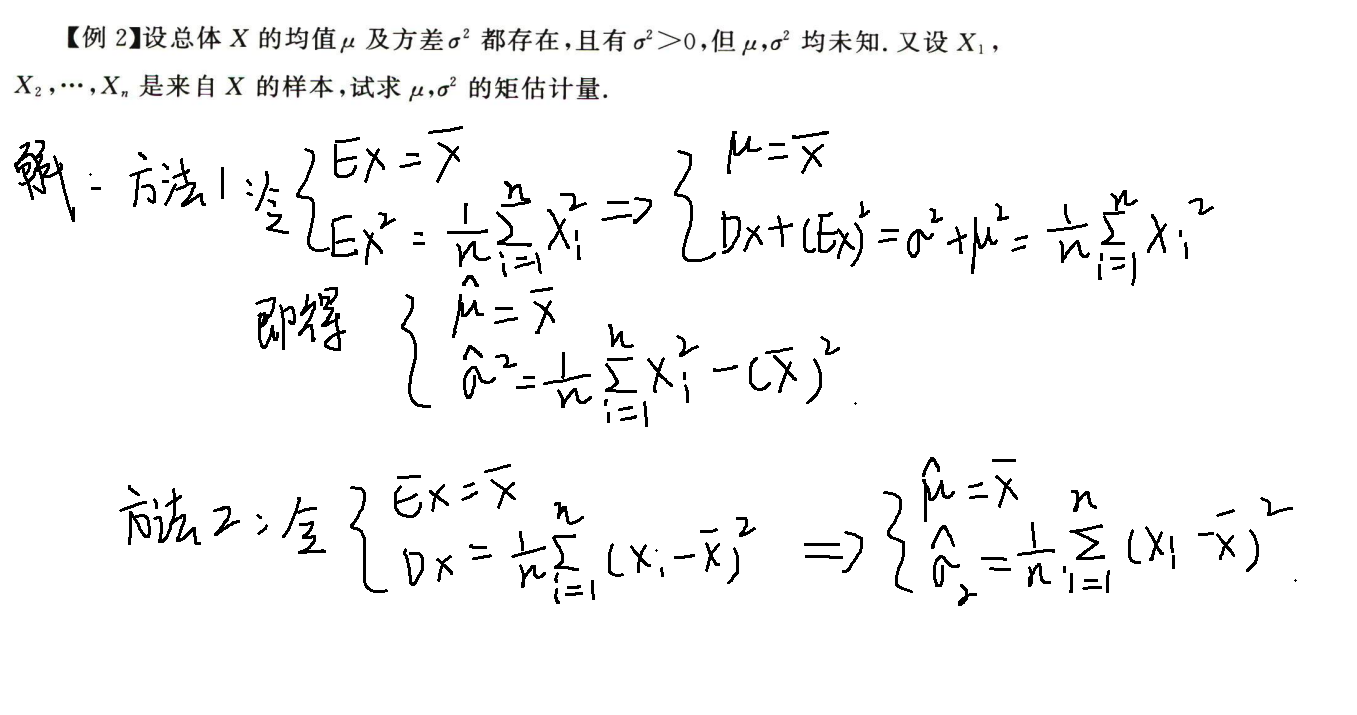 【例 2】设总体 X 的均值 μ 及方差 σ² 都存在,且有 σ²>0,但 μ,σ² 均未知. 又设 X₁,
X₂,⋯,Xₙ 是来自 X 的样本,试求 μ,σ² 的矩估计量.
解: 方法1:令 { EX = X̄ ; EX² = 1/n ∑_{i=1}^{n} X_i² ⇒ { μ = X̄ ; DX+(EX)² = σ²+μ² = 1/n ∑_{i=1}^{n} X_i²
即得 { μ̂ = X̄ ; σ̂² = 1/n ∑_{i=1}^{n} X_i² − (X̄)² .
方法2:令 { EX = X̄ ; DX = 1/n ∑_{i=1}^{n} (X_i − X̄)² ⇒ { μ̂ = X̄ ; σ̂₂ = 1/n ∑_{i=1}^{n} (X_i − X̄)² .